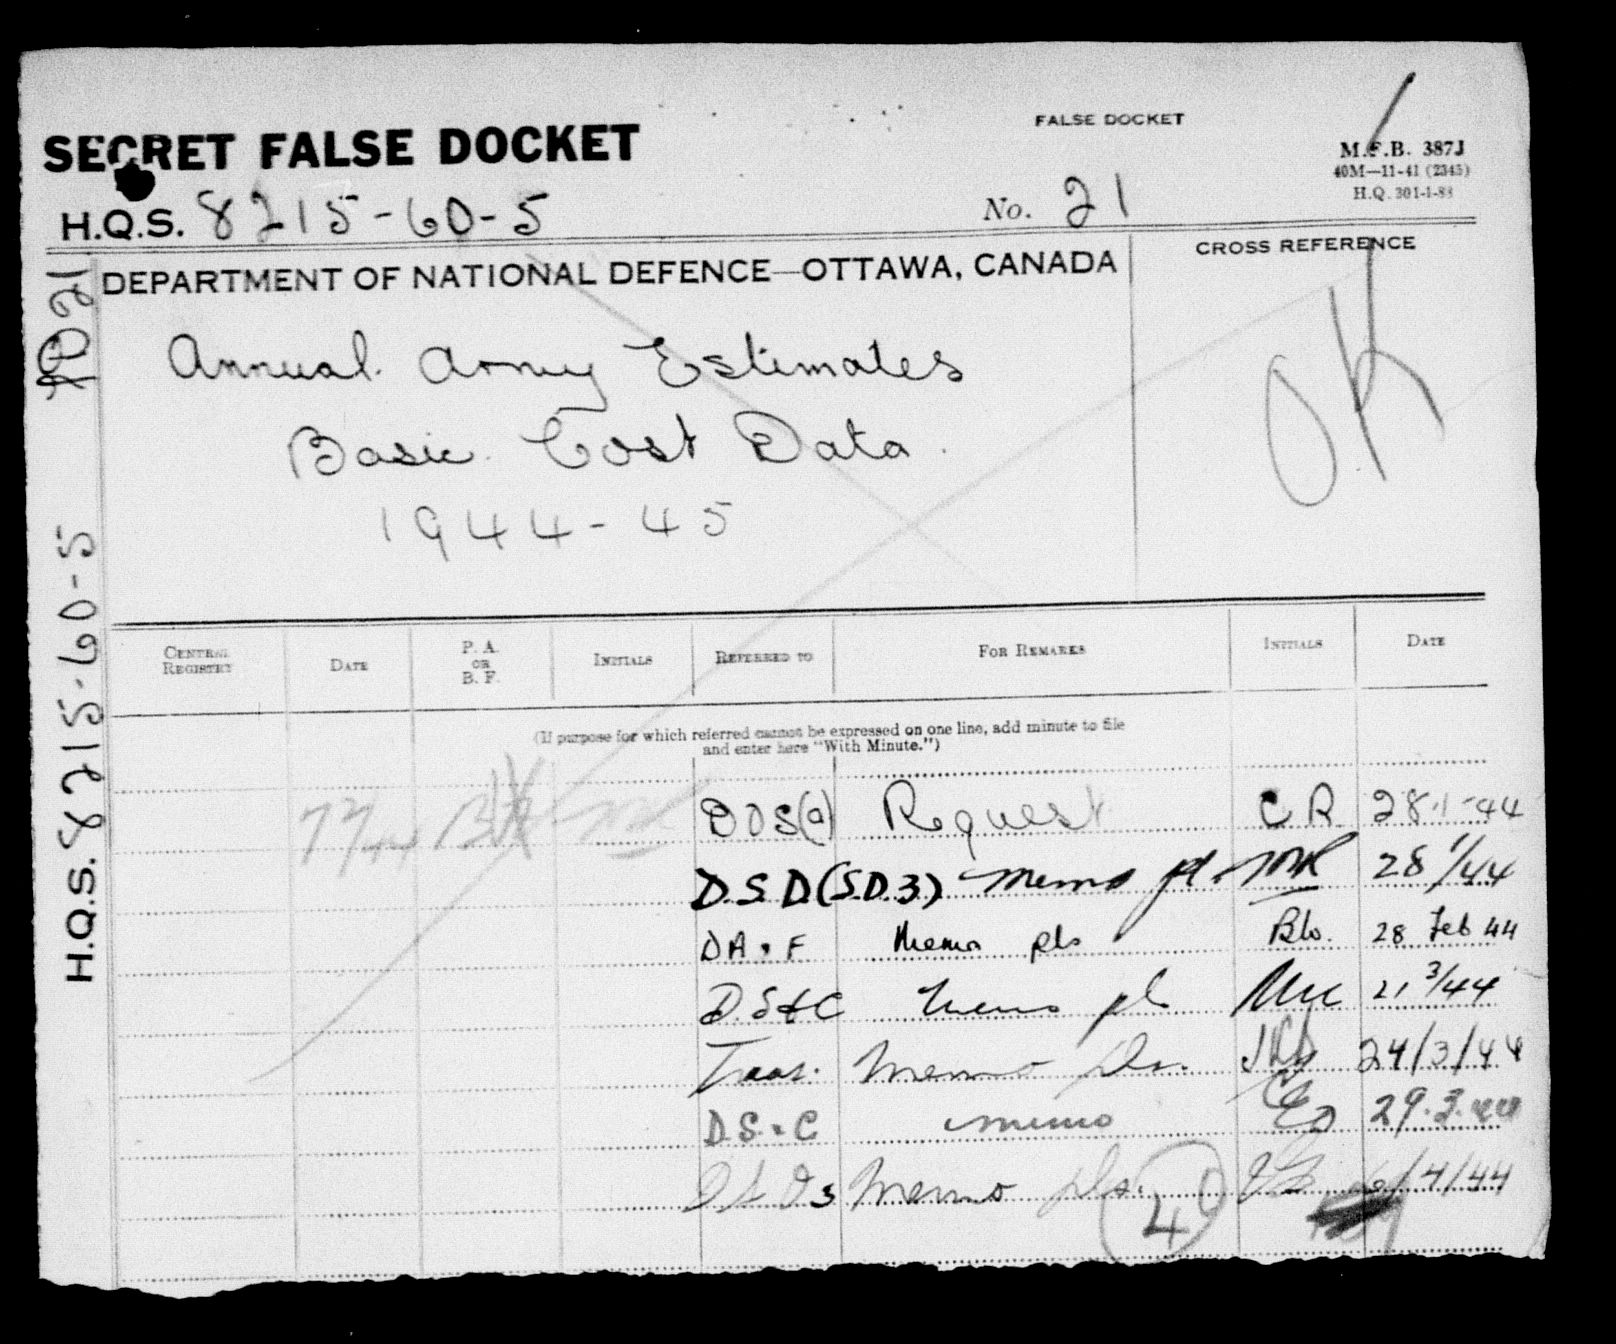 FALSE DOCKET
SECRET FALSE DOCKET
M.F.B. 387J
40M—11-41 (2345)
H.Q. 301-1-88
H.Q.S. 8215-60-5
No. 21
DEPARTMENT OF NATIONAL DEFENCE—OTTAWA, CANADA
CROSS REFERENCE
OK
Annual Army Estimates
Basic Cost Data.
1944-45
H.Q.S. 8215-60-5 FD 21
CENTRAL REGISTRY DATE P. A. OR B. F. INITIALS REFERRED TO FOR REMARKS INITIALS DATE
(If purpose for which referred cannot be expressed on one line, add minute to file
and enter here "With Minute.")
DOS(a) Request CR 28-1-44
D.S.D.(S.D.3) Memo pl 28 1/44
DA.F Memo pls 28 Feb 44
D.S&C Memo pl 21 3/44
Treas. Memo pls. 24/3/44
D.S.C memo 29.3.44
Memo pls. /4/44
40